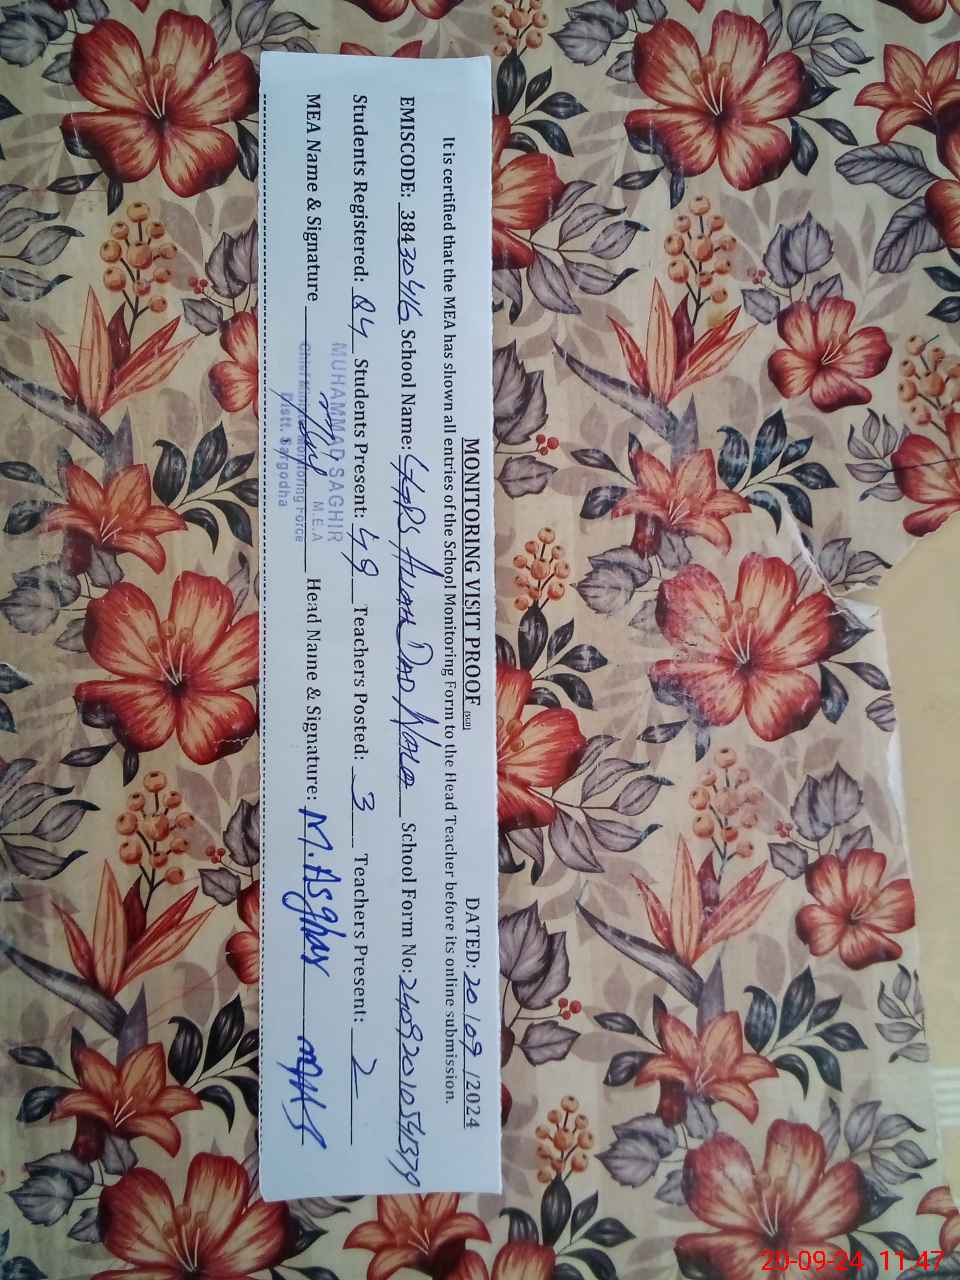 MONITORING VISIT PROOF DATED: 20/09/2024
It is certified that the MEA has shown all entries of the School Monitoring Form to the Head Teacher before its online submission.
EMISCODE: 38430416 School Name: GGPS Allah Dad Wala School Form No:
Students Registered: 84 Students Present: 49 Teachers Posted: 3 Teachers Present: 2
MEA Name & Signature Head Name & Signature: M. Asghar
MUHAMMAD SAGHIR
M.E.A
Chief Minister Monitoring Force
Distt. Sargodha
20-09-24 11:47